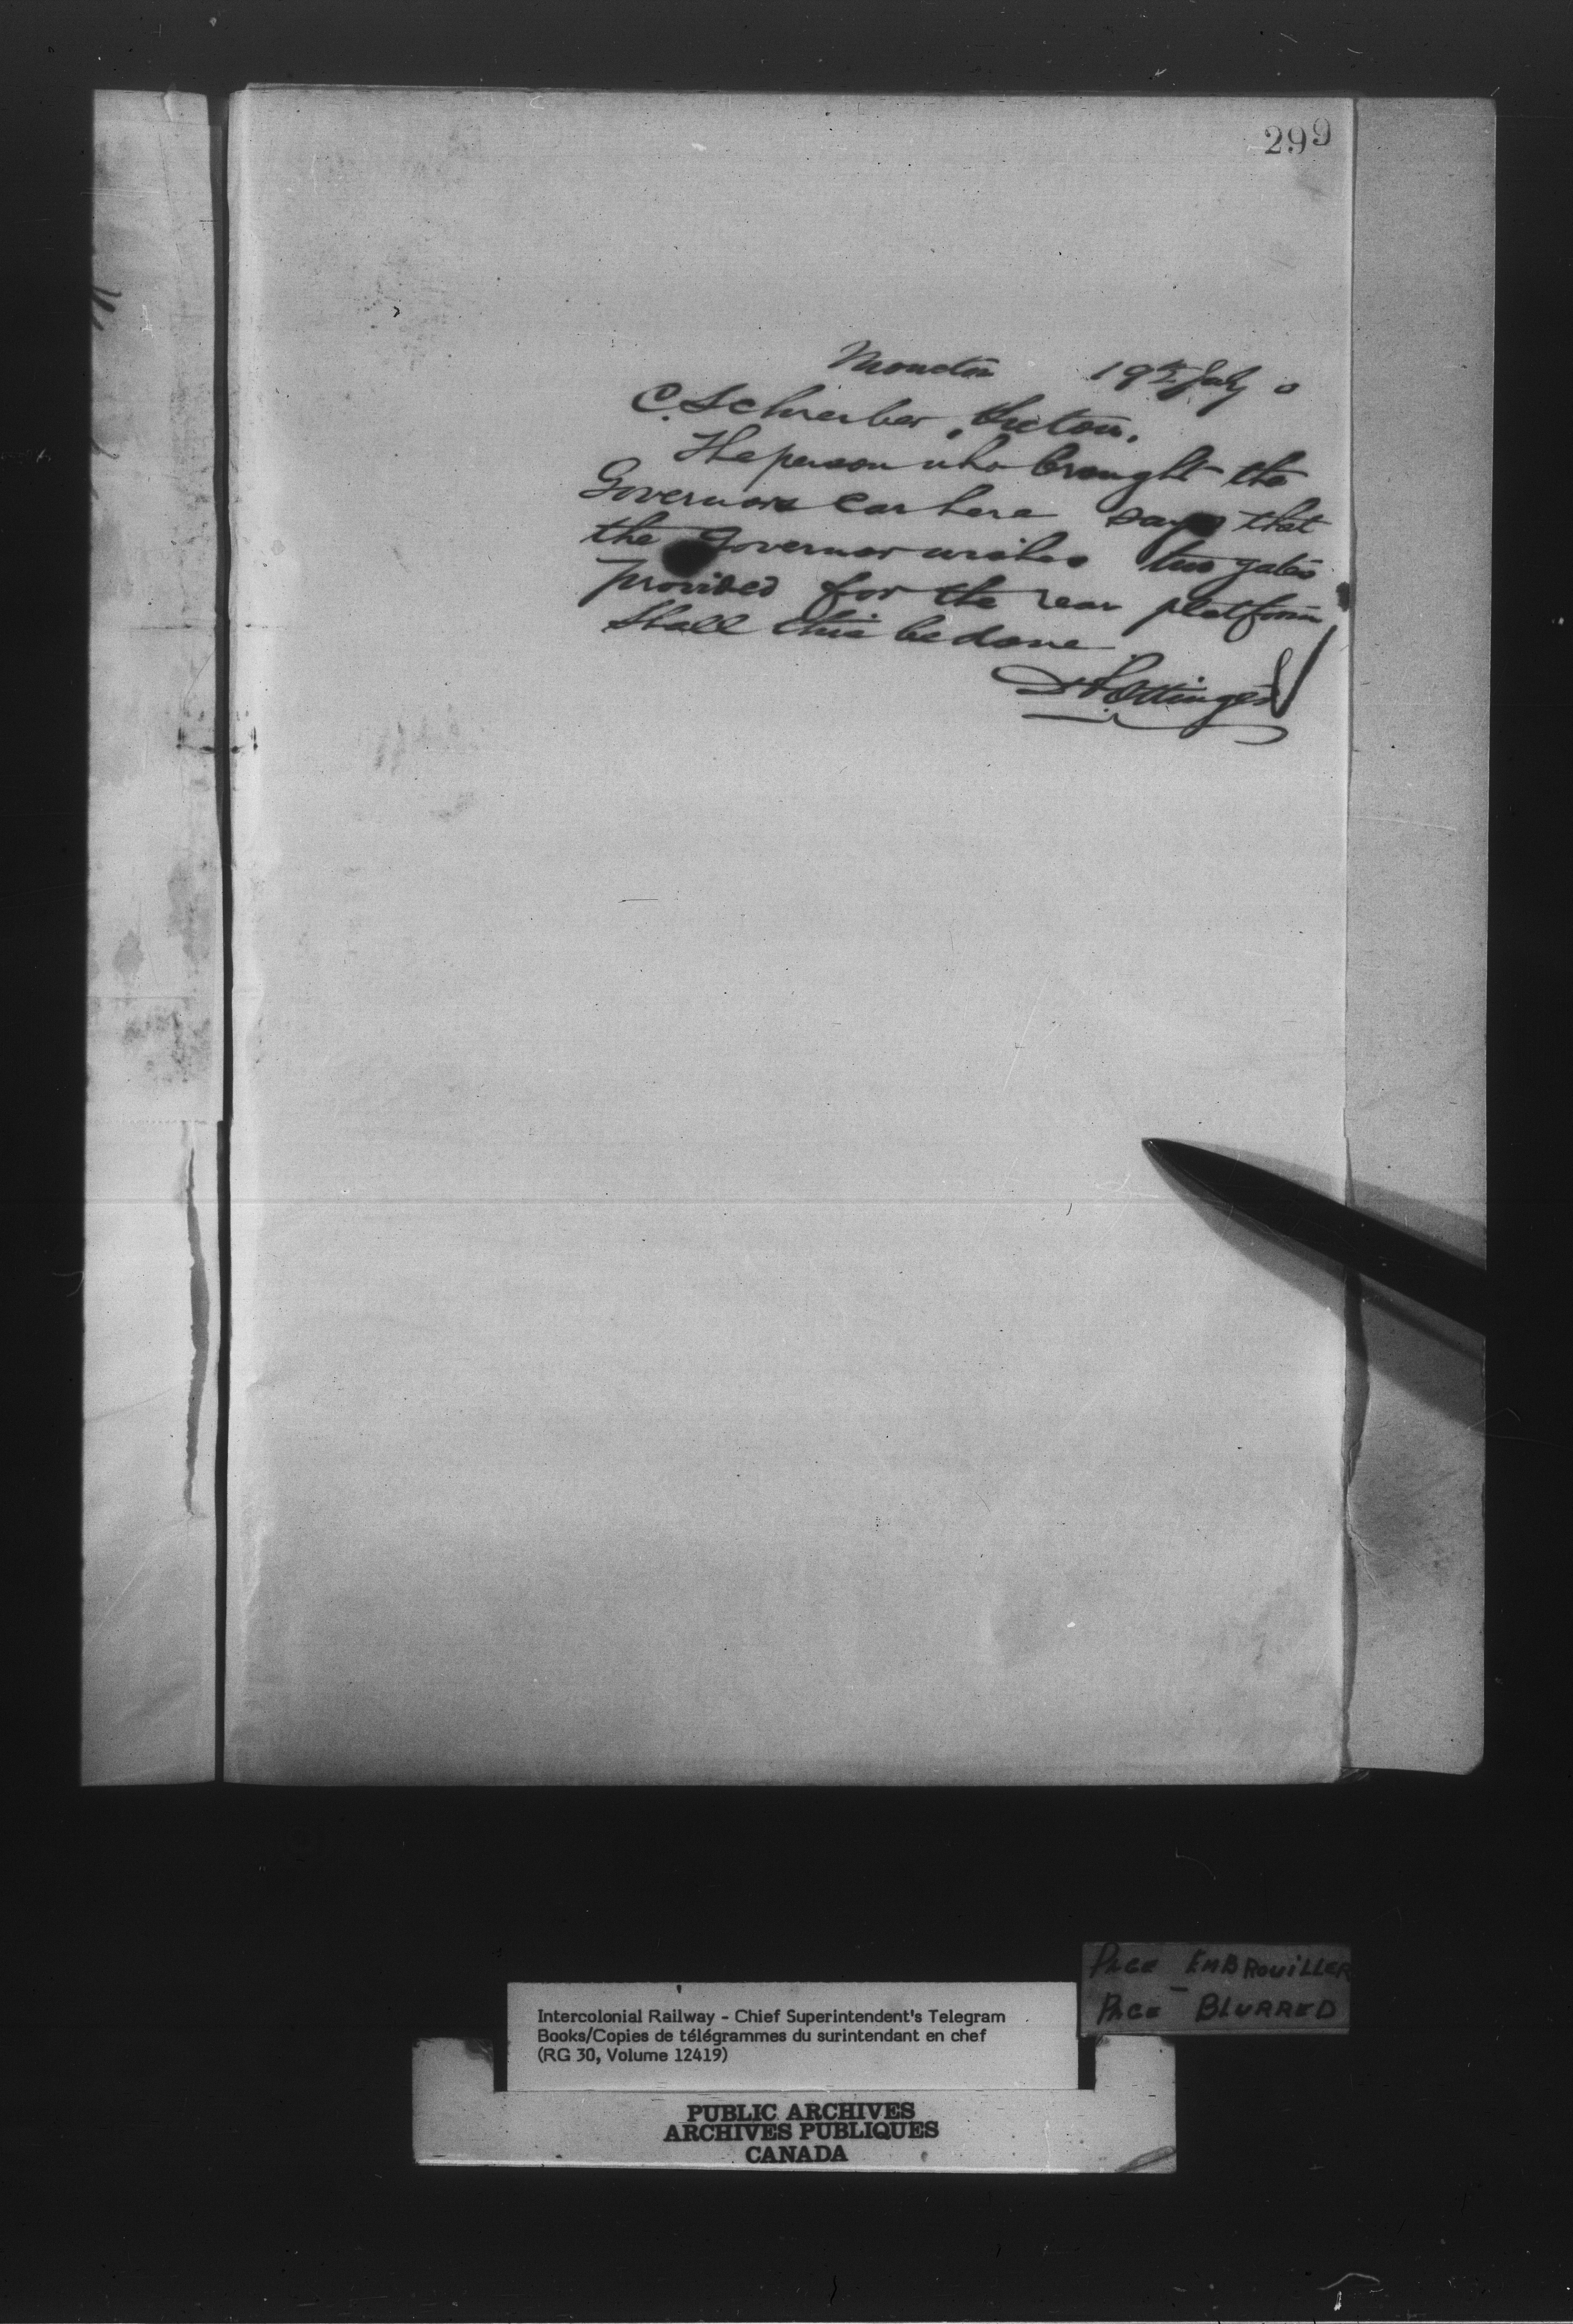 299
Moncton 19th July 0
C. Schreiber, Pictou.
The person who brought the
Governors Car here says that
the Governor wishes two gates
provided for the rear platform
Shall this be done
D Pottinger
PAGE EMBROUILLER
PAGE BLURRED
Intercolonial Railway - Chief Superintendent's Telegram
Books/Copies de télégrammes du surintendant en chef
(RG 30, Volume 12419)
PUBLIC ARCHIVES
ARCHIVES PUBLIQUES
CANADA